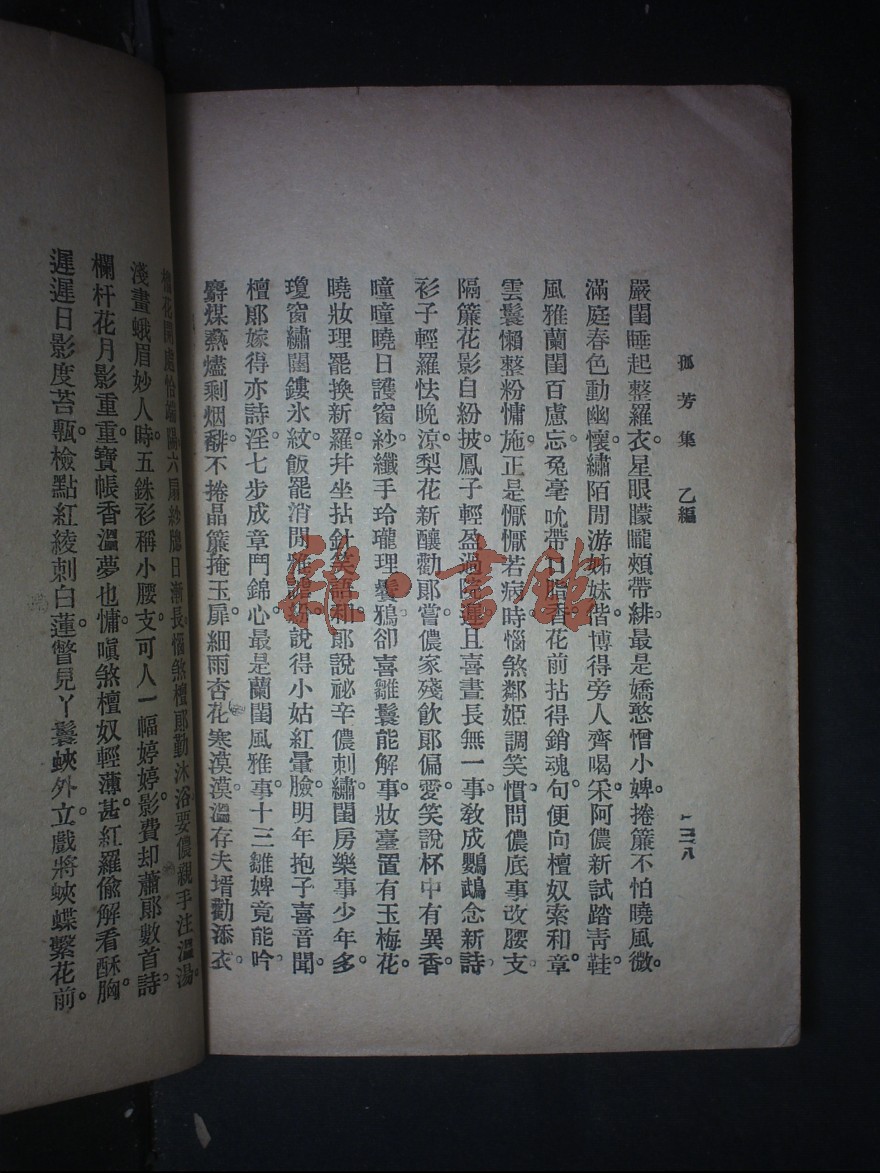 孤芳集　乙編
一三八
嚴閨睡起整羅衣。星眼朦朧頰帶緋。最是嬌憨憎小婢。捲簾不怕曉風微。
滿庭春色動幽懷。繡陌閒游姊妹偕。博得旁人齊喝采。阿儂新試踏靑鞋。
風雅蘭閨百慮忘。兔毫吮帶口脂香。花前拈得銷魂句。便向檀奴索和章。
雲鬟懶整粉慵施。正是懨懨若病時。惱煞鄰姬調笑慣。問儂底事改腰支。
隔簾花影自紛披。鳳子輕盈過院遲。且喜晝長無一事。敎成鸚鵡念新詩。
衫子輕羅怯晚涼。梨花新釀勸郞嘗。儂家殘飲郞偏愛。笑說杯中有異香。
曈曈曉日護窗紗。纖手玲瓏理鬢鴉。卻喜雛鬟能解事。妝臺置有玉梅花。
曉妝理罷換新羅。並坐拈針笑語和。郞說祕辛儂刺繡。閨房樂事少年多。
瓊窗繡闥鏤氷紋。飯罷消閒雅謔。說得小姑紅暈臉。明年抱子喜音聞。
檀郞嫁得亦詩淫。七步成章鬥錦心。最是蘭閨風雅事。十三雛婢竟能吟。
麝煤爇燼剩烟霏。不捲晶簾掩玉扉。細雨杏花寒漠漠。溫存夫壻勸添衣。
花開處恰端陽。六扇紗牕日漸長。惱煞檀郞勤沐浴。要儂親手注溫湯。
淺畫蛾眉妙入時。五銖衫稱小腰支。可人一幅婷婷影。費却蕭郞數首詩。
欄杆花月影重重。寶帳香溫夢也慵。嗔煞檀奴輕薄甚。紅羅偸解看酥胸。
遲遲日影度苔甎。檢點紅綾刺白蓮。瞥見丫鬟蛺外立。戲將蛺蝶繫花前。
雜·書館